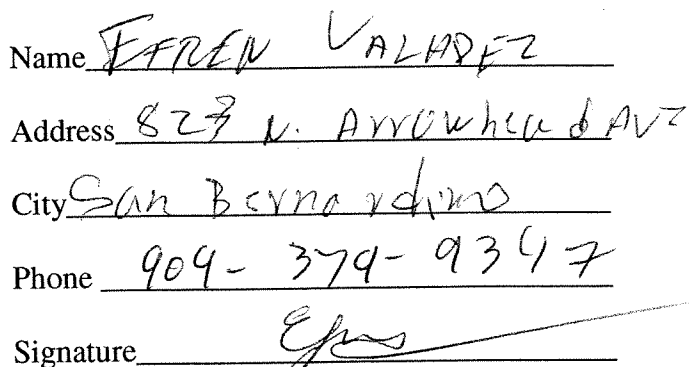 Name EFREN VALADEZ
Address 823 N. Arrowhead AVE
City San Bernardino
Phone 909- 379- 9347
Signature Efren